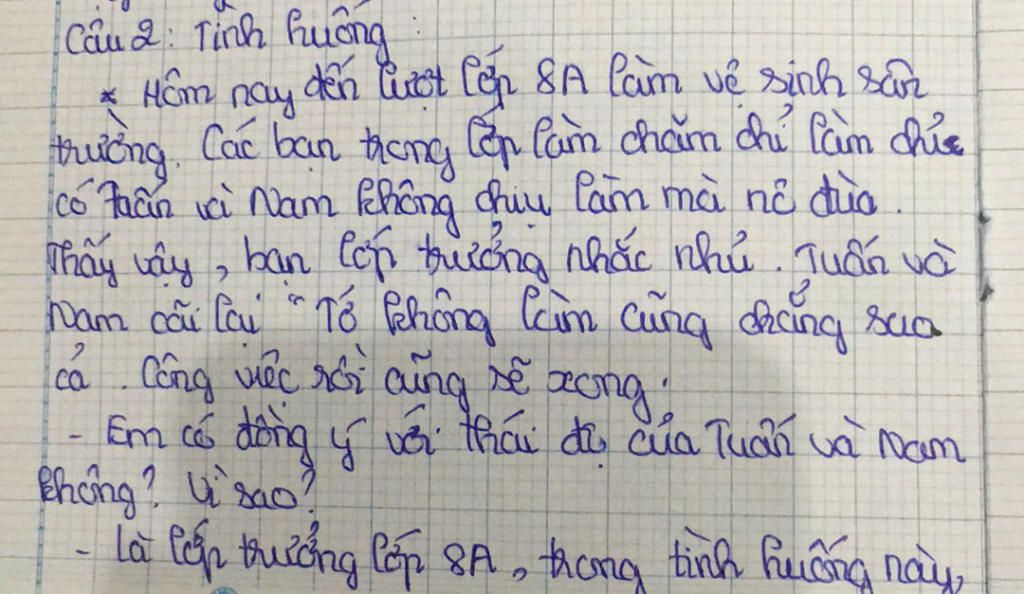 Câu 2: Tình huống:
* Hôm nay đến lượt lớp 8A làm vệ sinh sân
trường. Các bạn trong lớp làm chăm chỉ làm chỉ
có Tuấn và Nam không chịu làm mà nô đùa.
Thấy vậy, bạn lớp trưởng nhắc nhở. Tuấn và
Nam cãi lại "Tớ không làm cũng chẳng sao
cả. Công việc rồi cũng sẽ xong.
- Em có đồng ý với thái độ của Tuấn và Nam
không? Vì sao?
- Là lớp trưởng lớp 8A, trong tình huống này,